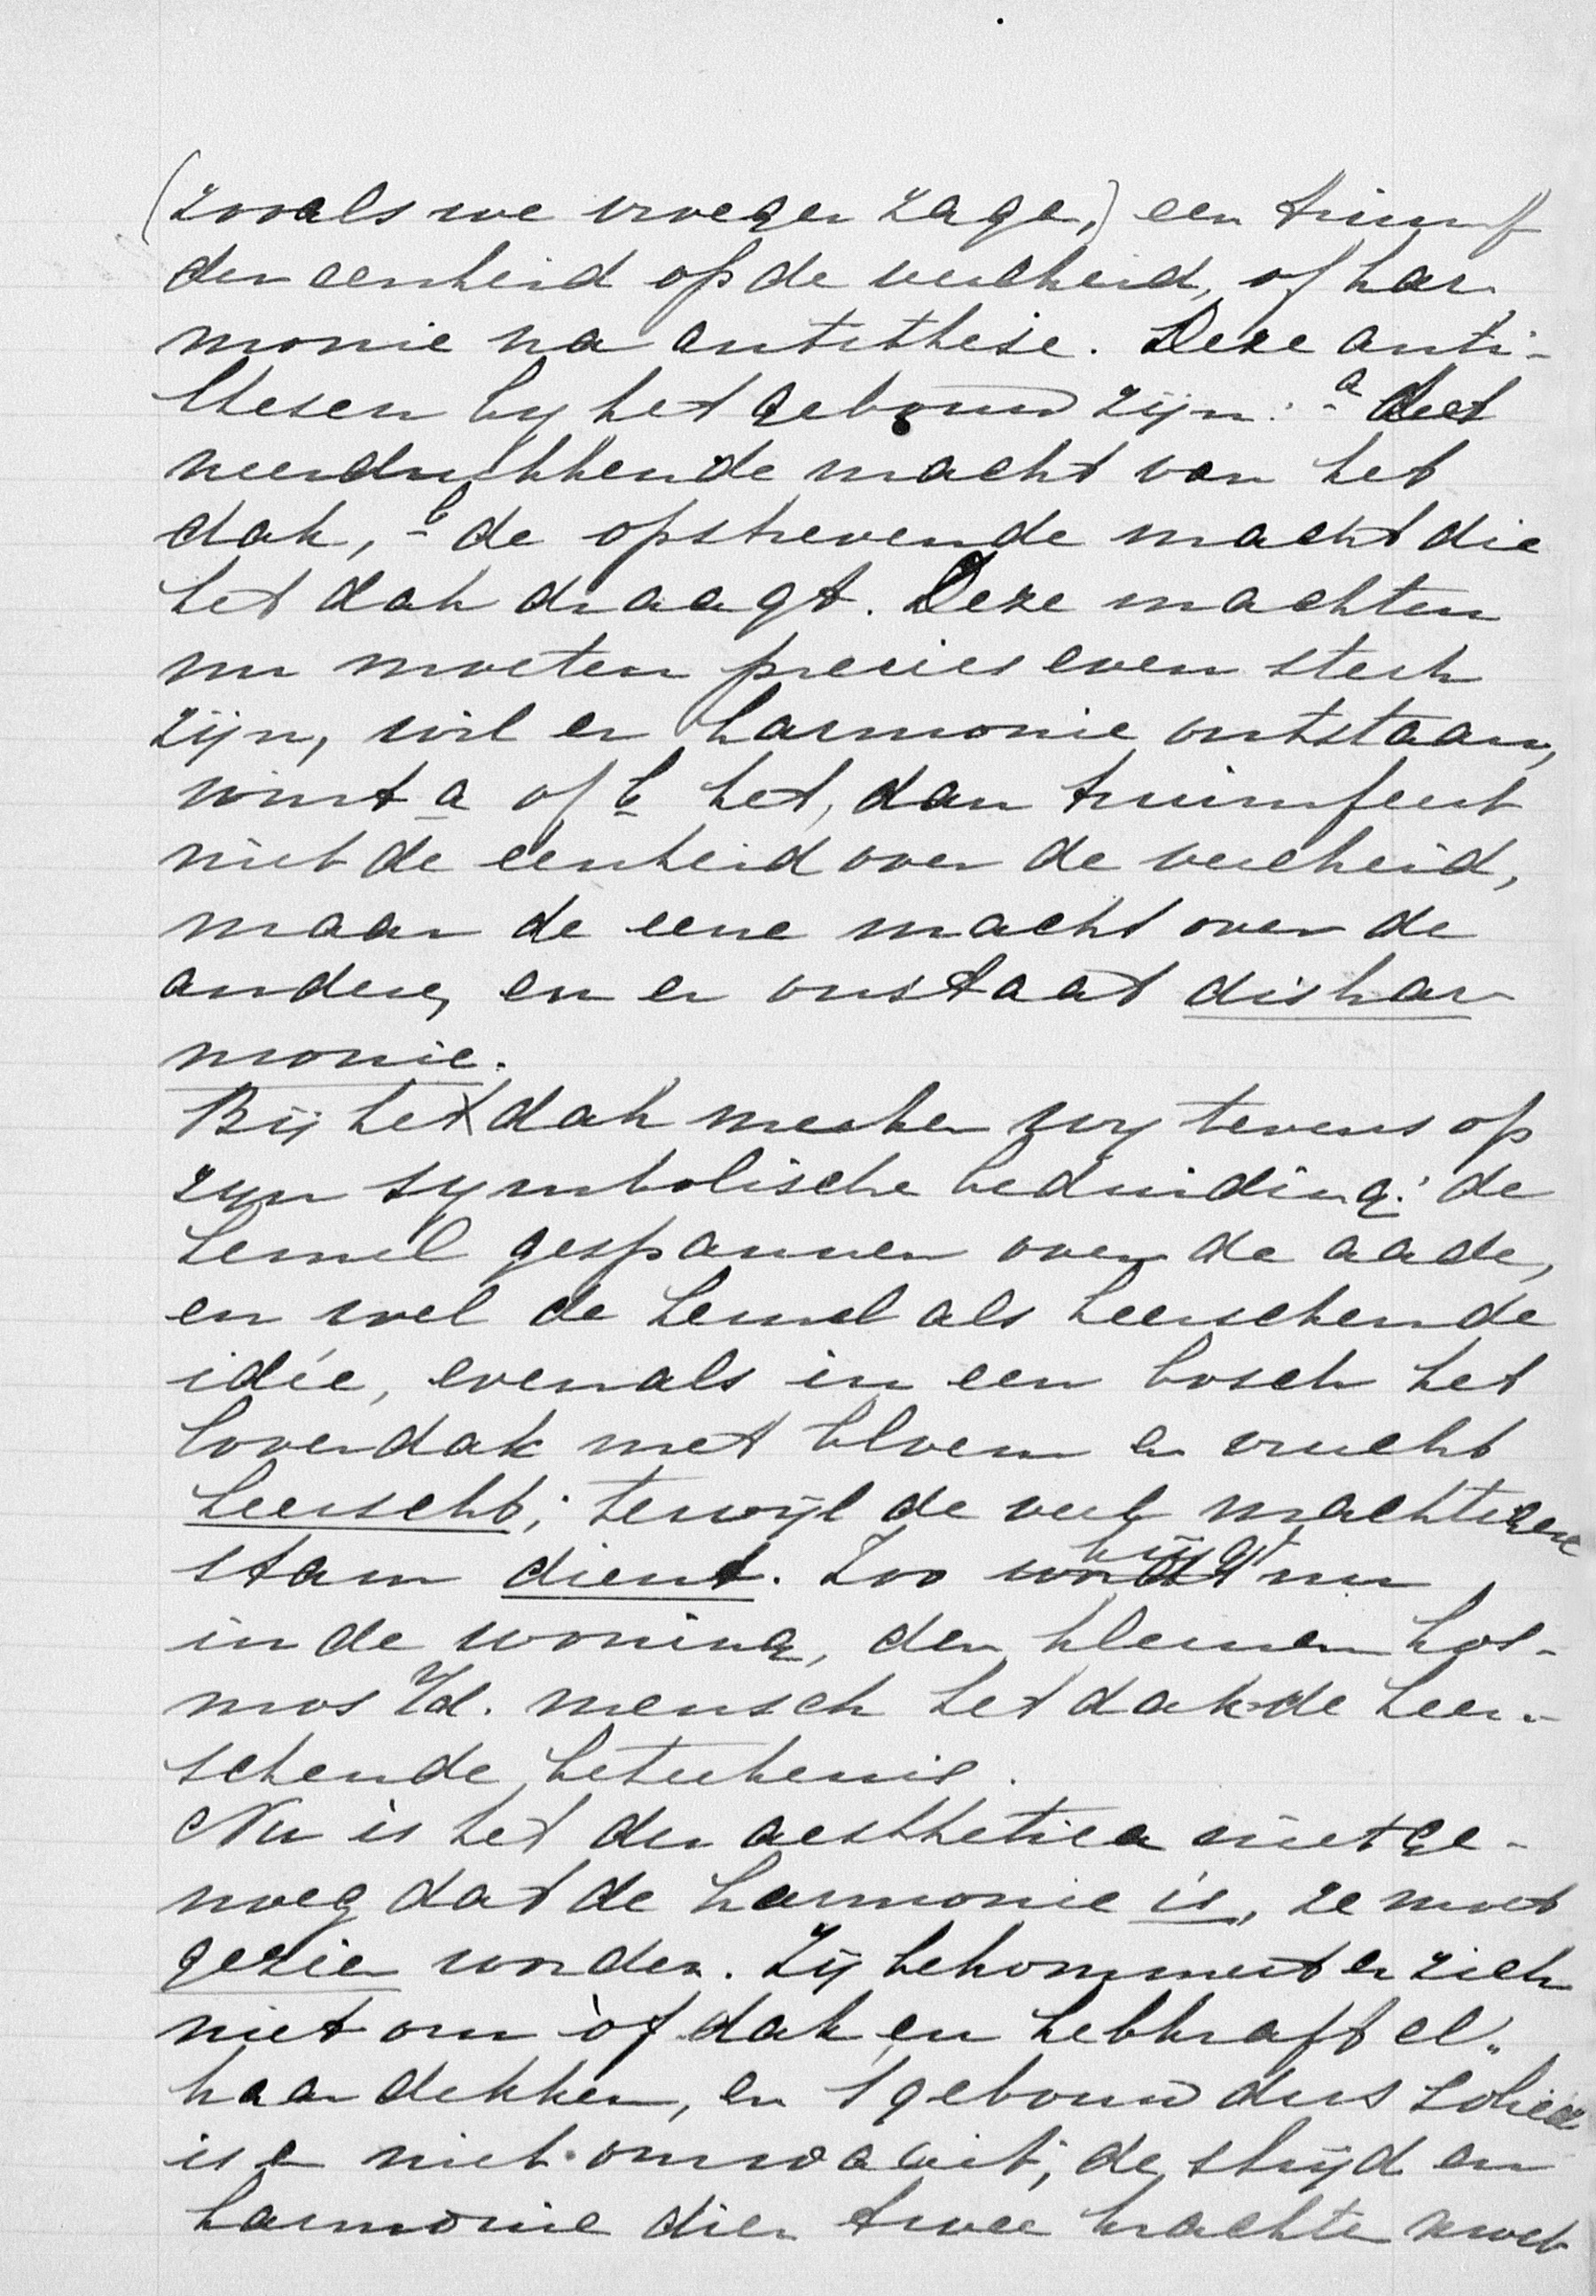 (zooals we vroeger zage,) een triumf
der eenheid op de veelheid, of har-
monie na antithese. Deze anti-
thesen by het gebouw zijn: - a het
neerdrukkende macht van het
dak, - b de opstrevende macht die
het dak draagt. Deze machten
nu moeten precies even sterk
zijn, wil er harmonie ontstaan,
wint a of b het, dan triumfeert
niet de eenheid over de veelheid,
maar de eene macht over de
andere, en er onstaat dishar-
monie.
Bij het dak merken wy tevens op
zyn symbolische beduiding: de
hemel gespannen over de aade,
en wel de hemel als heerschende
idée, evenals in een bosch het
loverdak met bloem en vrucht
heerscht; terwijl de veel machtigere
stam dient. Zoo wordt krijgt nu
in de woning, den kleinen kos-
mos v/d. mensch het dak de heer-
schende beteekenis.
Nu is het der aesthetica niet ge-
noeg dat de harmonie is, ze moet
gezien worden. Zij bekommert er zich
niet om òf dak en hefkraft el-
kaar dekken, en 't gebouw dus solied
is en niet omwaait; de strijd en
harmonie dier twee krachten moet